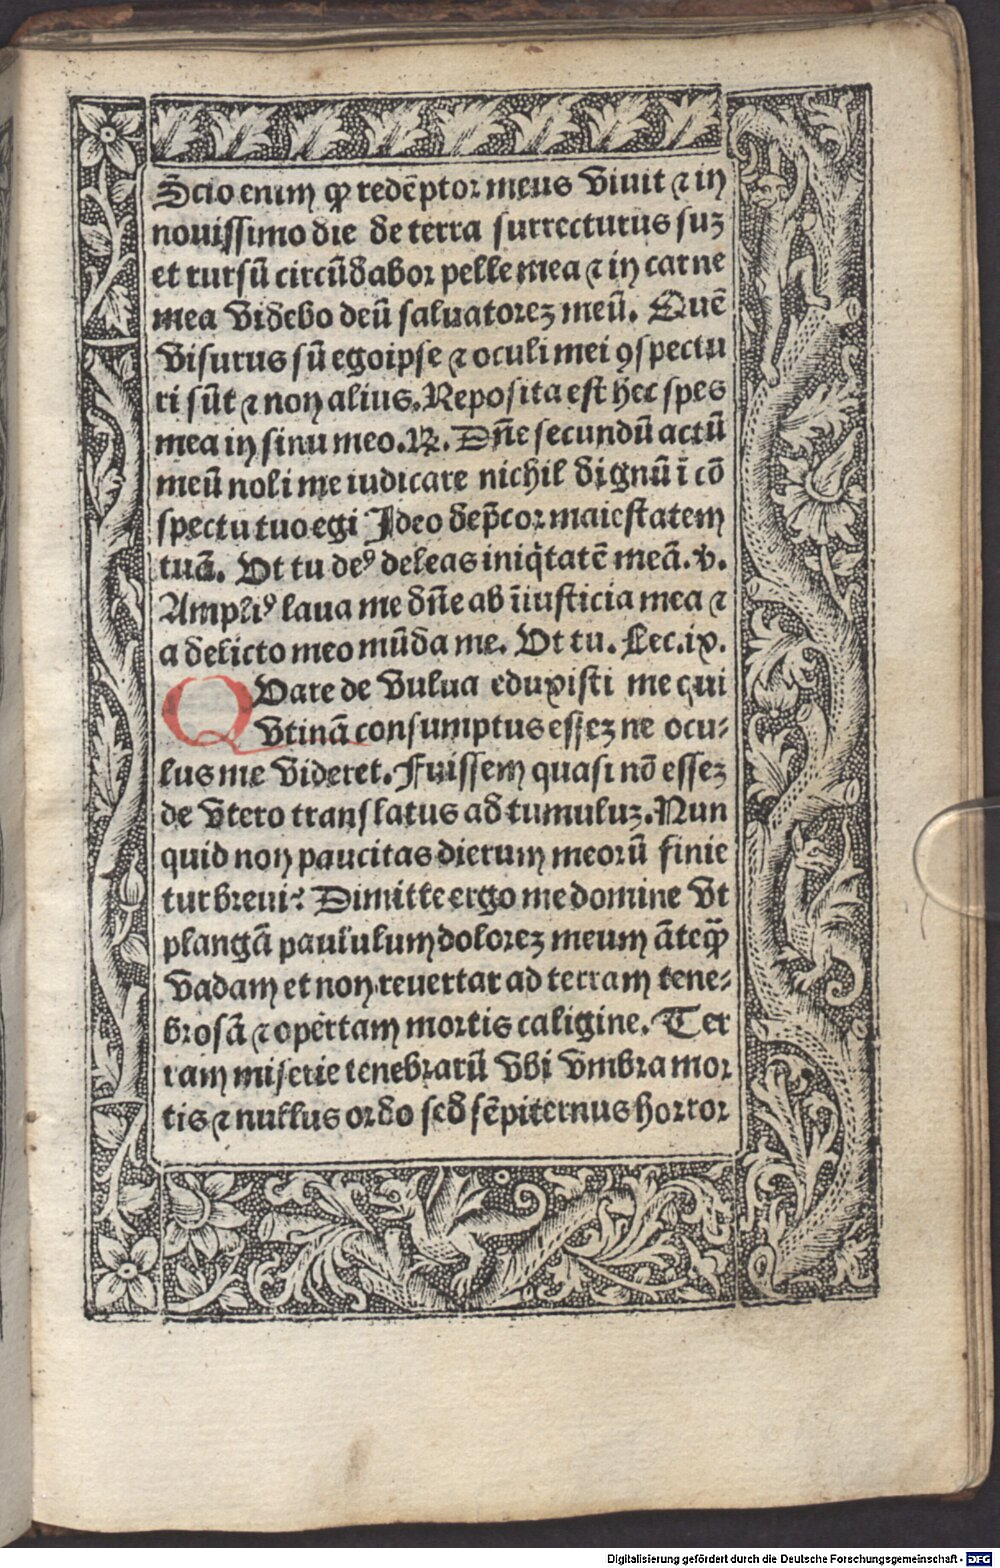 Scio enim ꝙ redēptor meus viuit ⁊ in
nouissimo die de terra surrecturus suꝫ
et rursū circūdabor pelle mea ⁊ in carne
mea videbo deū saluatoreꝫ meū. Quē
visurus sū egoipse ⁊ oculi mei ꝯspectu
ri sūt ⁊ non alius. Reposita est hec spes
mea in sinu meo. ℟. Dn̄e secundū actū
meū noli me iudicare nichil dignū ī cō
spectu tuo egi Ideo dep̄cor maiestatem
tuā. Vt tu deꝰ deleas iniq̇tatē meā. v.
Ampliꝰ laua me dn̄e ab īiusticia mea ⁊
a delicto meo mūda me. Vt tu. Lec. ix.
QVare de vulua eduxisti me qui
vtinā consumptus esseꝫ ne ocu-
lus me videret. Fuissem quasi nō esseꝫ
de vtero translatus ad tumuluꝫ. Nun
quid non paucitas dierum meorū finie
tur breui? Dimitte ergo me domine vt
plangā paululum doloreꝫ meum āteꝙ̄
vadam et non reuertar ad terram tene-
brosā ⁊ opertam mortis caligine. Ter
ram miserie tenebrarū vbi vmbra mor
tis ⁊ nullus ordo sed sēpiternus horror
Digitalisierung gefördert durch die Deutsche Forschungsgemeinschaft - DFG